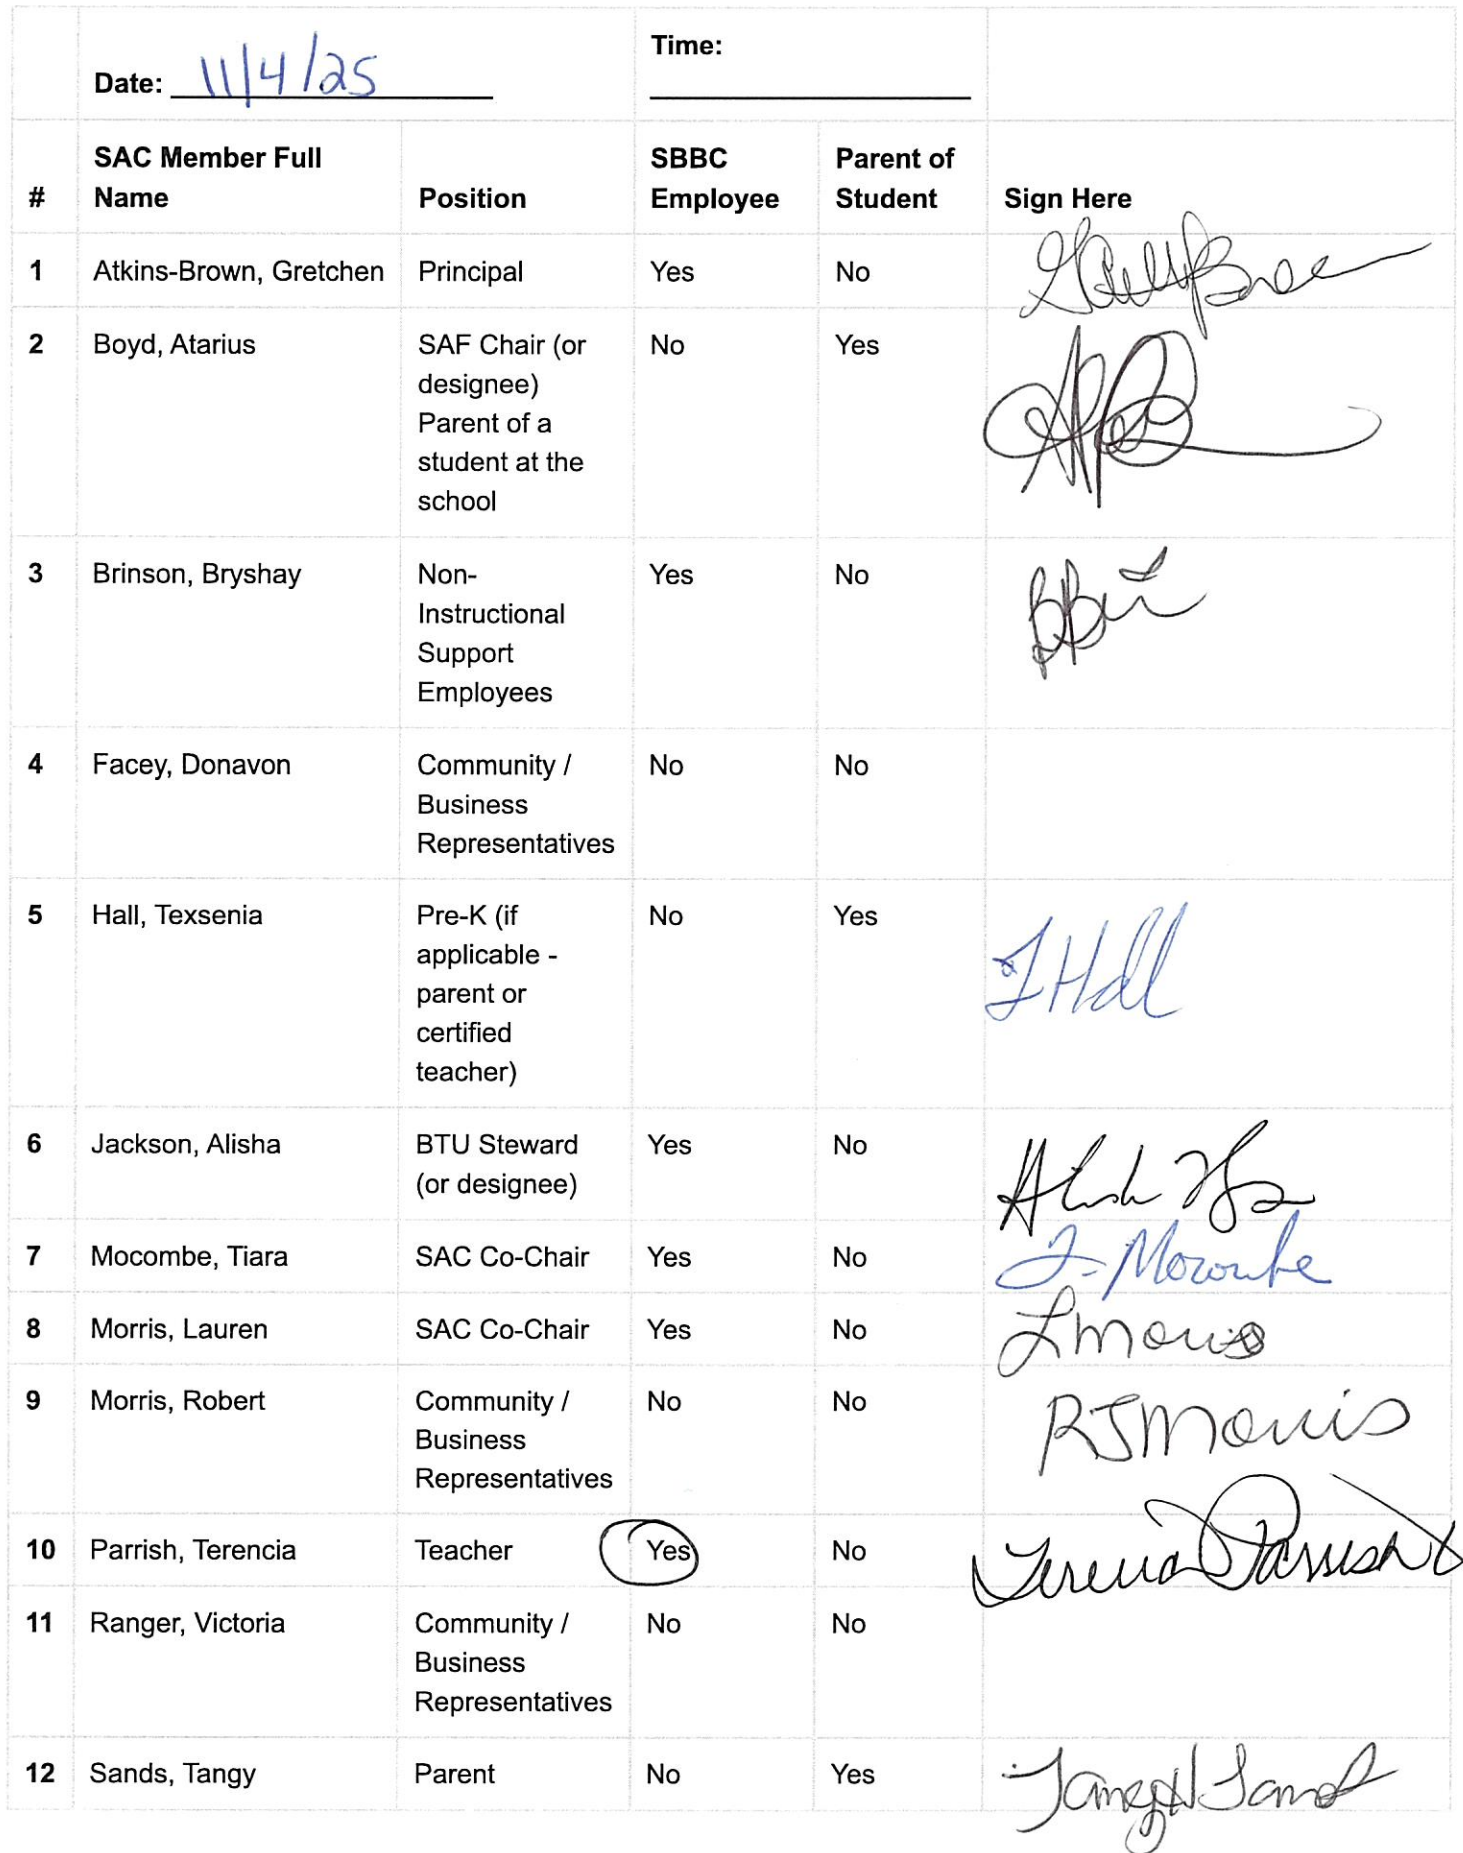 Time:
Date: 11/4/25
SAC Member Full
Name
#
Position
SBBC
Employee
Parent of
Student
Sign Here
1 Atkins-Brown, Gretchen Principal Yes No
2 Boyd, Atarius SAF Chair (or No Yes
designee)
Parent of a
student at the
school
3 Brinson, Bryshay Non- Yes No
Instructional
Support
Employees
4 Facey, Donavon Community / No No
Business
Representatives
5 Hall, Texsenia Pre-K (if No Yes
applicable -
parent or
certified
teacher)
T Hall
6 Jackson, Alisha BTU Steward Yes No
(or designee)
7 Mocombe, Tiara SAC Co-Chair Yes No T. Mocombe
8 Morris, Lauren SAC Co-Chair Yes No LMorris
9 Morris, Robert Community / No No RJMorris
Business
Representatives
10 Parrish, Terencia Teacher Yes No Terencia Parrish
11 Ranger, Victoria Community / No No
Business
Representatives
12 Sands, Tangy Parent No Yes